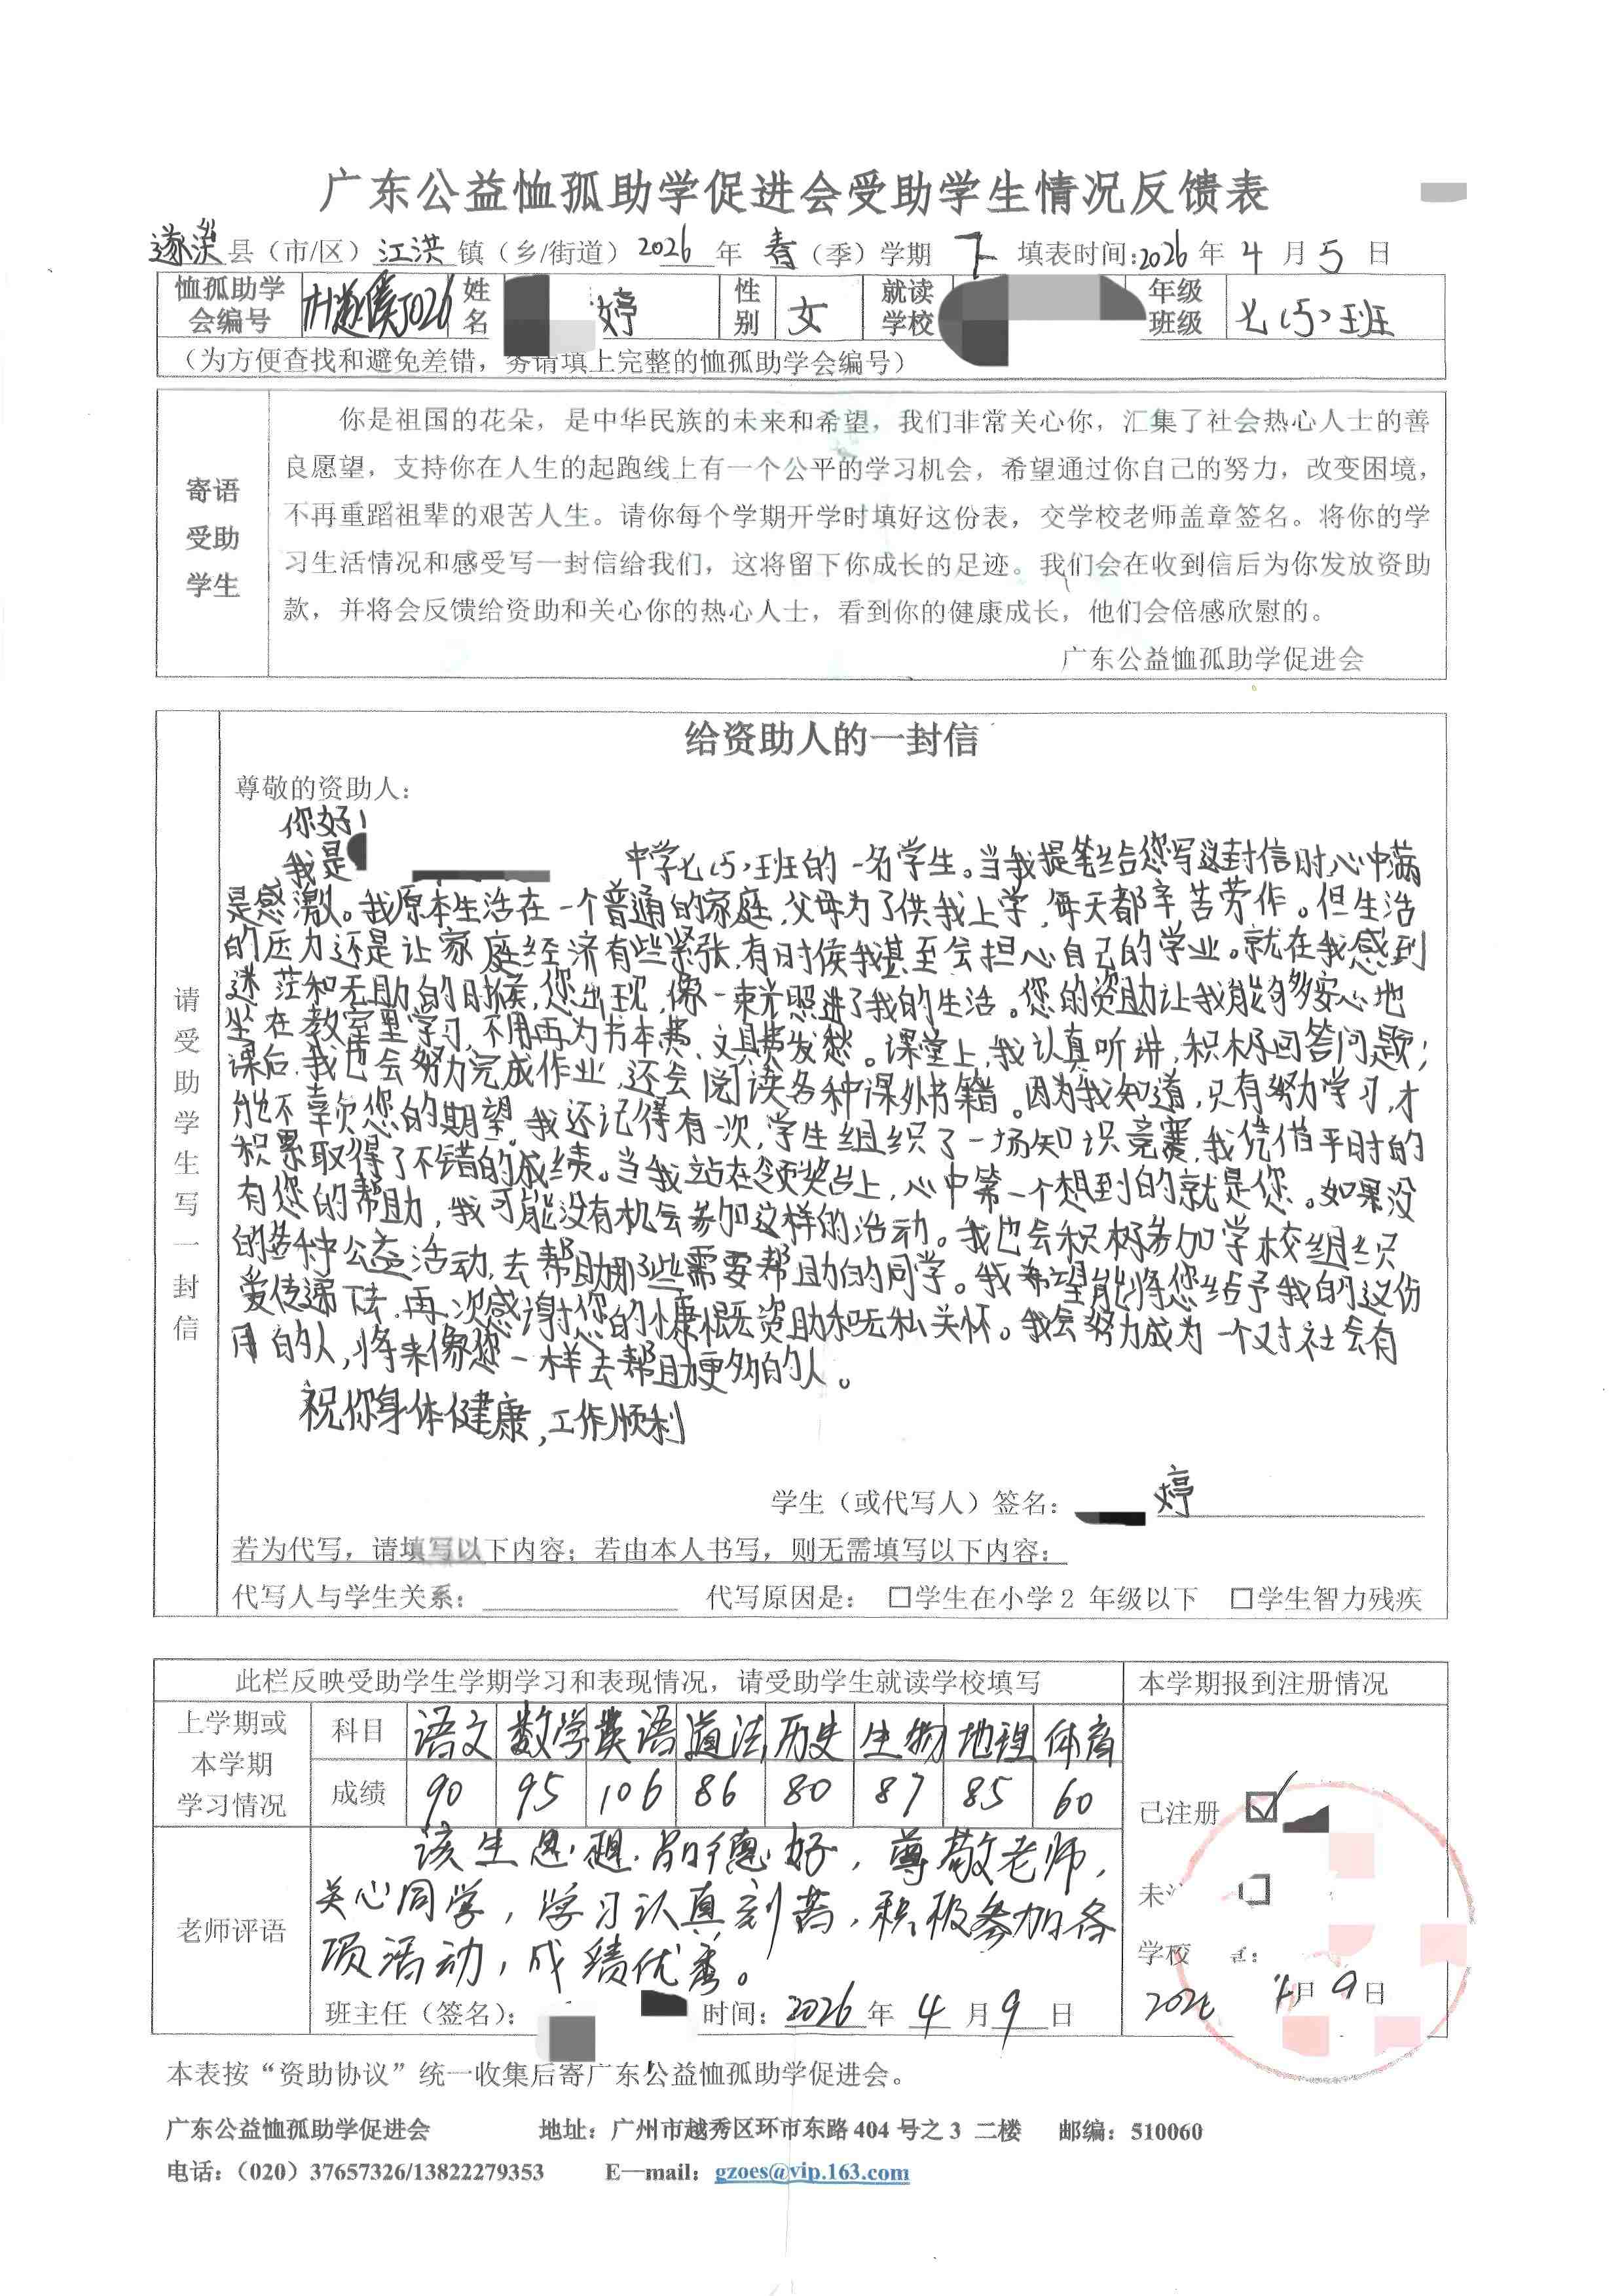 广东公益恤孤助学促进会受助学生情况反馈表
遂溪县（市/区）江洪镇（乡/街道）2026年春（季）学期下 填表时间:2026年4月5日
恤孤助学会编号 J026 姓名 婷 性别 女 就读学校 年级班级 七(5)班
（为方便查找和避免差错，务请填上完整的恤孤助学会编号）
寄语受助学生
你是祖国的花朵，是中华民族的未来和希望，我们非常关心你，汇集了社会热心人士的善
良愿望，支持你在人生的起跑线上有一个公平的学习机会，希望通过你自己的努力，改变困境，
不再重蹈祖辈的艰苦人生。请你每个学期开学时填好这份表，交学校老师盖章签名。将你的学
习生活情况和感受写一封信给我们，这将留下你成长的足迹。我们会在收到信后为你发放资助
款，并将会反馈给资助和关心你的热心人士，看到你的健康成长，他们会倍感欣慰的。
广东公益恤孤助学促进会
请受助学生写一封信
给资助人的一封信
尊敬的资助人：
你好！
我是 中学七(5)班的一名学生。当我提笔给您写这封信时，心中满
是感激。我原本生活在一个普通的家庭，父母为了供我上学，每天都辛苦劳作。但生活
的压力还是让家庭经济有些紧张，有时候我甚至会担心自己的学业。就在我感到
迷茫和无助的时候，您出现，像一束光照进了我的生活。您的资助让我能够安心地
坐在教室里学习，不用再为书本费、文具费发愁。课堂上，我认真听讲，积极回答问题；
课后，我也会努力完成作业，还会阅读各种课外书籍。因为我知道，只有努力学习，才
能不辜负您的期望。我还记得有一次，学生组织了一场知识竞赛，我凭借平时的
积累取得了不错的成绩。当我站在领奖台上，心中第一个想到的就是您。如果没
有您的帮助，我可能没有机会参加这样的活动。我也会积极参加学校组织
的各种公益活动，去帮助那些需要帮助的同学。我希望能将您给予我的这份
爱传递下去。再次感谢您的慷慨资助和无私关怀。我会努力成为一个对社会有
用的人，将来像您一样去帮助更多的人。
祝你身体健康，工作顺利
学生（或代写人）签名： 婷
若为代写，请填写以下内容；若由本人书写，则无需填写以下内容：
代写人与学生关系： 代写原因是： □学生在小学2 年级以下 □学生智力残疾
此栏反映受助学生学期学习和表现情况，请受助学生就读学校填写 本学期报到注册情况
上学期或本学期学习情况
科目 语文 数学 英语 道法 历史 生物 地理 体育
成绩 90 95 106 86 80 87 85 60
已注册 ☑
未 □
学校 ：
2026 4月9日
老师评语
该生思想品德好，尊敬老师，
关心同学，学习认真刻苦，积极参加各
项活动，成绩优秀。
班主任（签名）： 时间：2026年4月9日
本表按“资助协议”统一收集后寄广东公益恤孤助学促进会。
广东公益恤孤助学促进会 地址：广州市越秀区环市东路404号之3 二楼 邮编：510060
电话：（020）37657326/13822279353 E—mail：gzoes@vip.163.com